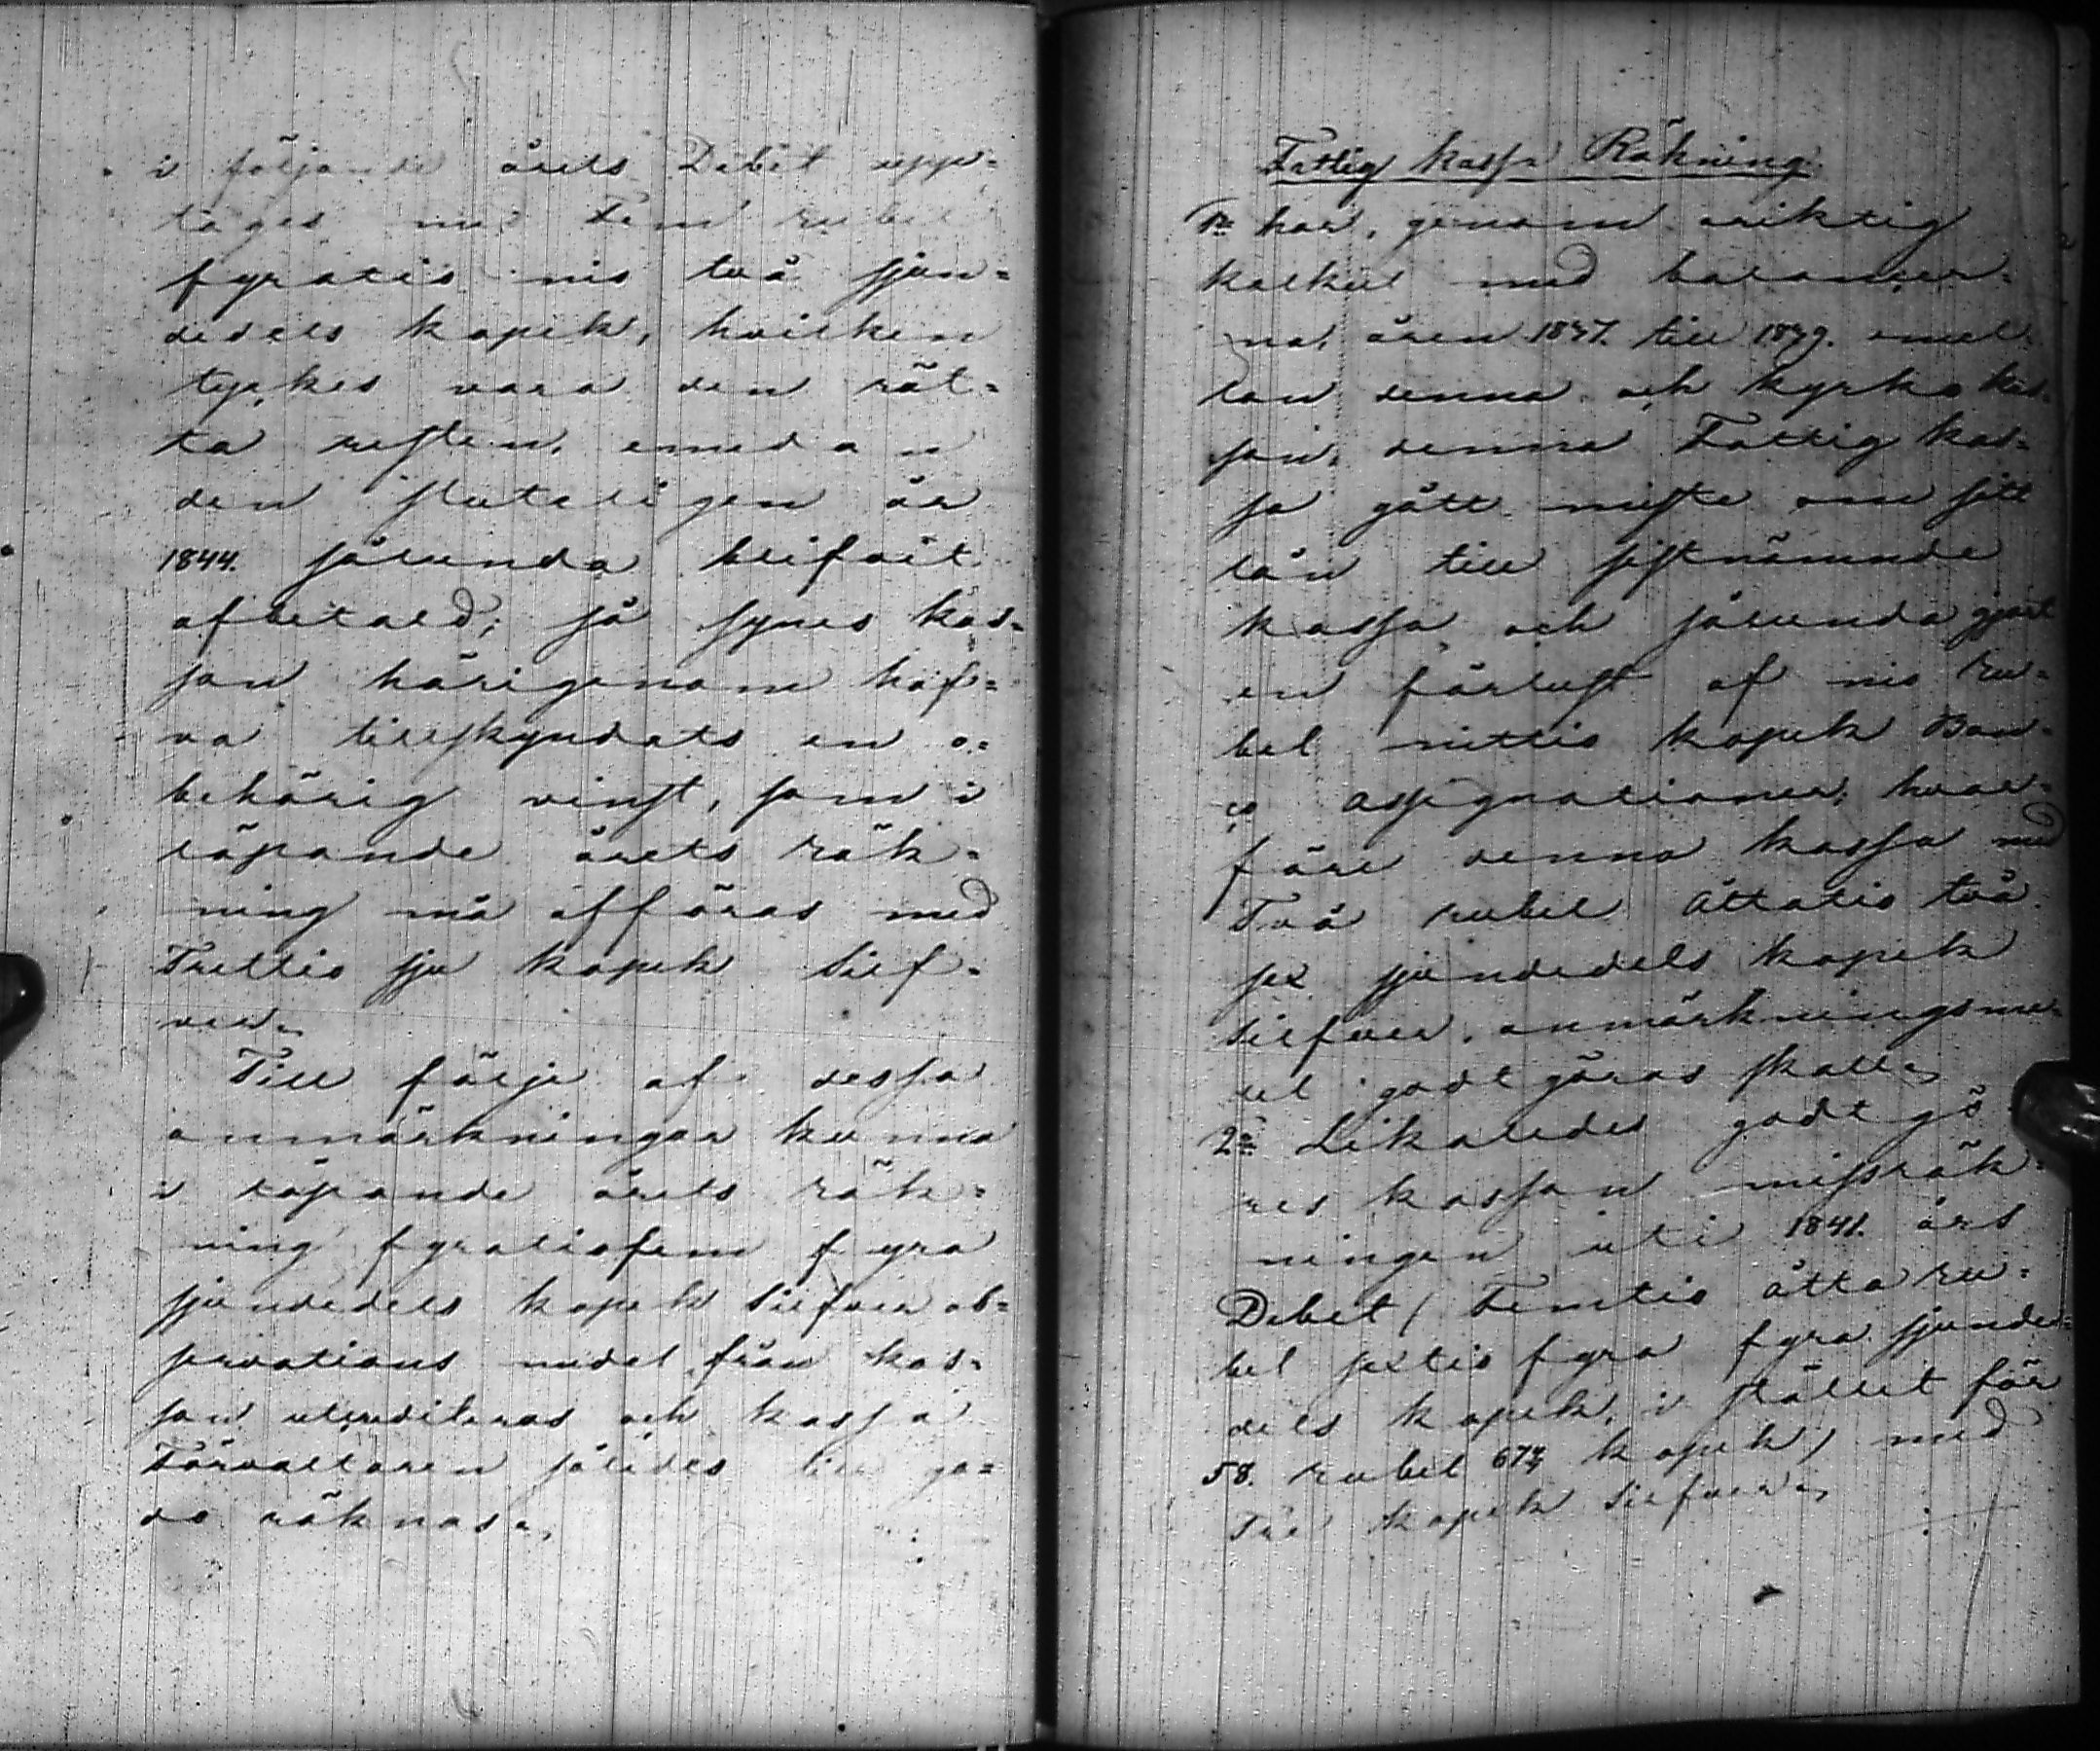 i följande årets Debet upp=
tages med Fem rubel
fyratio nio två sjun=
dedels kopek, hvilken
tyckes vara den rät=
ta resten, emedan
den sluteligen år
1844. sålunda blifvit
afbetald; så synes kas=
san härigenom haf=
va tillskyndats en o=
behörig vinst, som i
löpande årets räk=
ning må afföras med
Trettio sju kopek Silf=
ver.
Till följe af dessa
anmärkningar kunna
i löpande årets räk=
ning fyratiofem fyra
sjundedels kopek Silfver ob=
servations medel från kas=
san utkrediteras och kassa
Förvaltaren således till go=
do räknas.
Fattig kassa Räkning
1o har, genom oriktig
kalkul med balancer=
na, åren 1837. till 1839. emel=
lan denna och kyrko kas=
san, denna Fattig kas=
sa gått miste om sitt
lån till sistnämnde
kassa och sålunda gjort
en förlust af nio ru=
bel nittio kopek Ban=
co Assignationer; hvar=
före denna kassa med
Två rubel åttatio två
sex sjundedels kopek
Silfver, anmärkningsme=
del godtgöras skall.
2o Likaledes godtgö=
res kassan missräk=
ningen uti 1841. års
Debet / Femtio åtta ru=
bel sextio fyra fyra sjunde=
dels kopek, i stället för
58. rubel 67 4/7 kopek / med
Tre kopek Silfver.